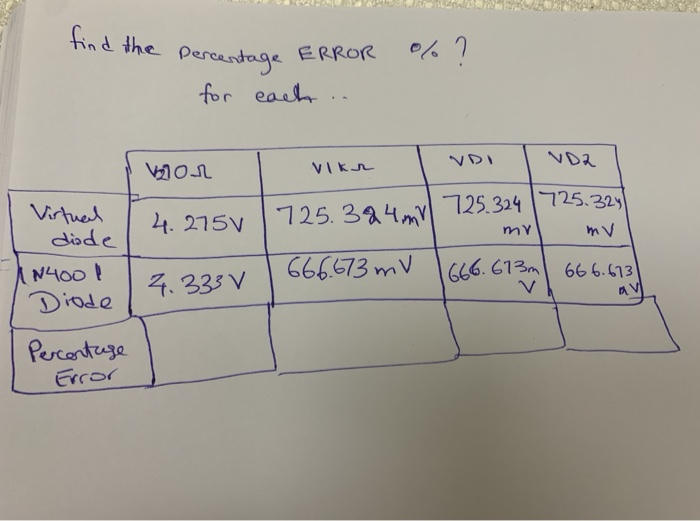 find the percentage ERROR % ?
for each ..
VIKΩ VD1 VD2
Virtual diode 4.275V 725.324mV 725.324 mV 725.324 mV
1N4001 Diode .333V 666.673mV 666.673m V 666.673
Percentage Error